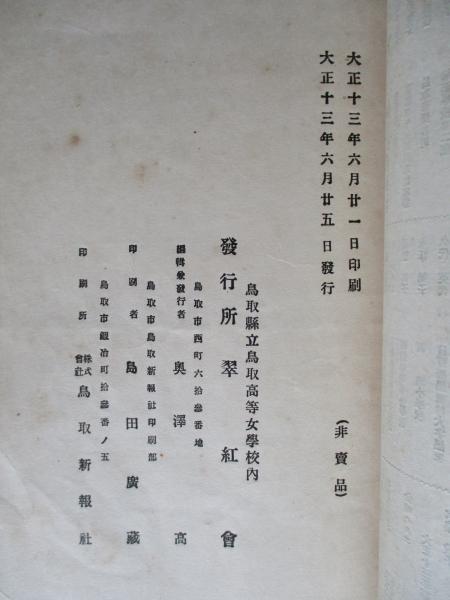 大正十三年六月廿一日印刷
大正十三年六月廿五日發行
(非賣品)
鳥取縣立鳥取高等女學校內
發行所 翠紅會
鳥取市西町六拾參番地
編輯兼發行者 奧澤高
鳥取市鳥取新報社印刷部
印刷者 島田廣藏
鳥取市鍛冶町拾參番ノ五
印刷所 株式會社 鳥取新報社